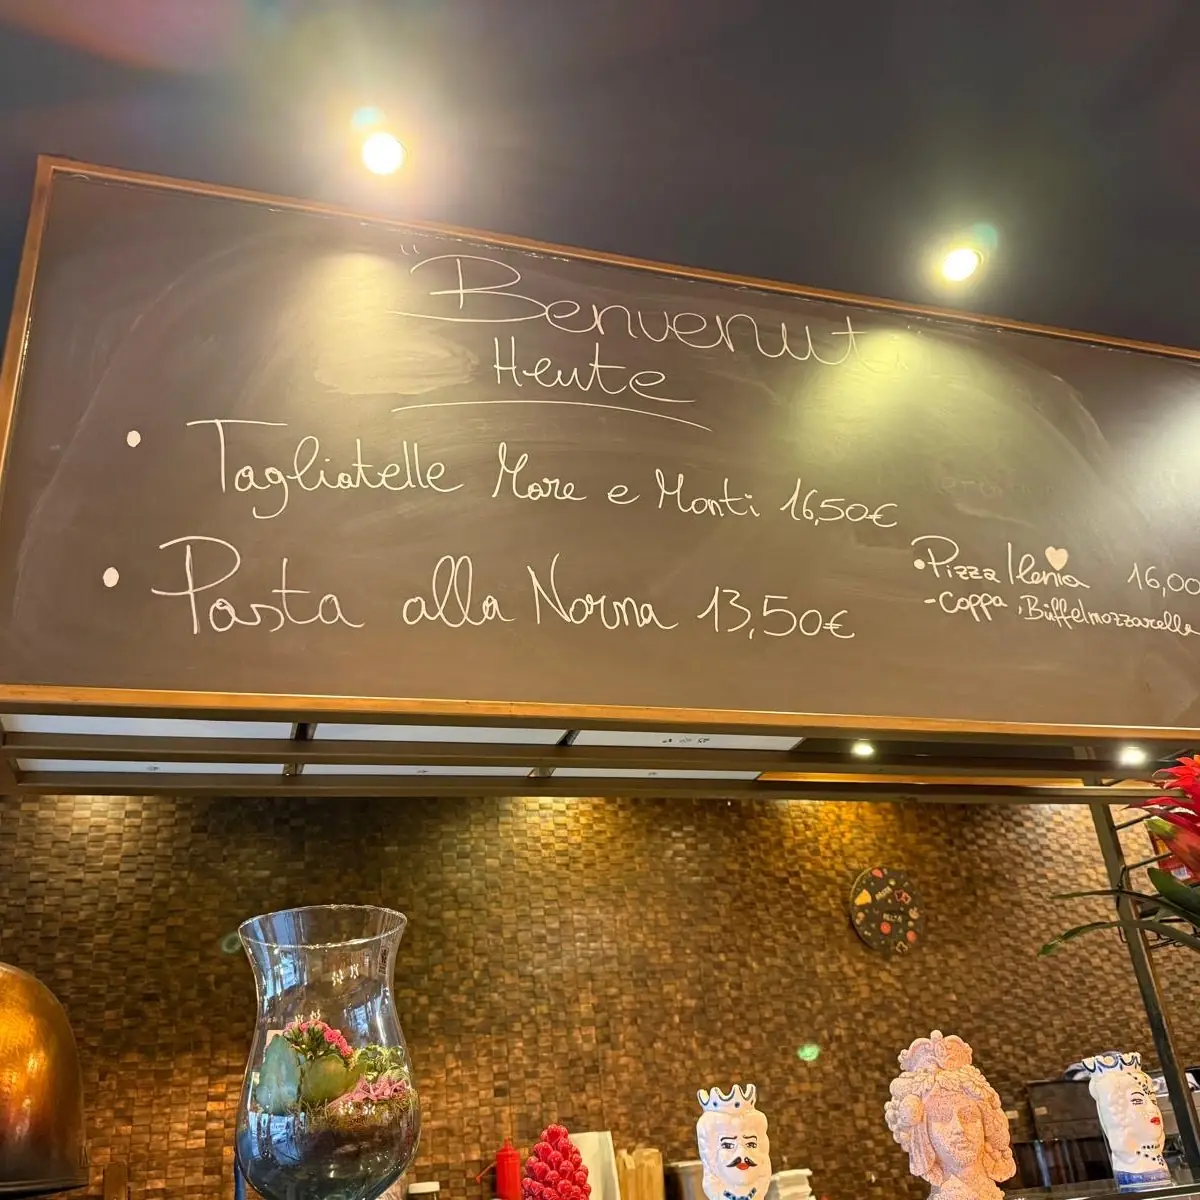 "Benvenuti"
Heute
• Tagliatelle Mare e Monti 16,50€
• Pasta alla Norma 13,50€
• Pizza Ilenia 16,00
- Coppa, Büffelmozzarella